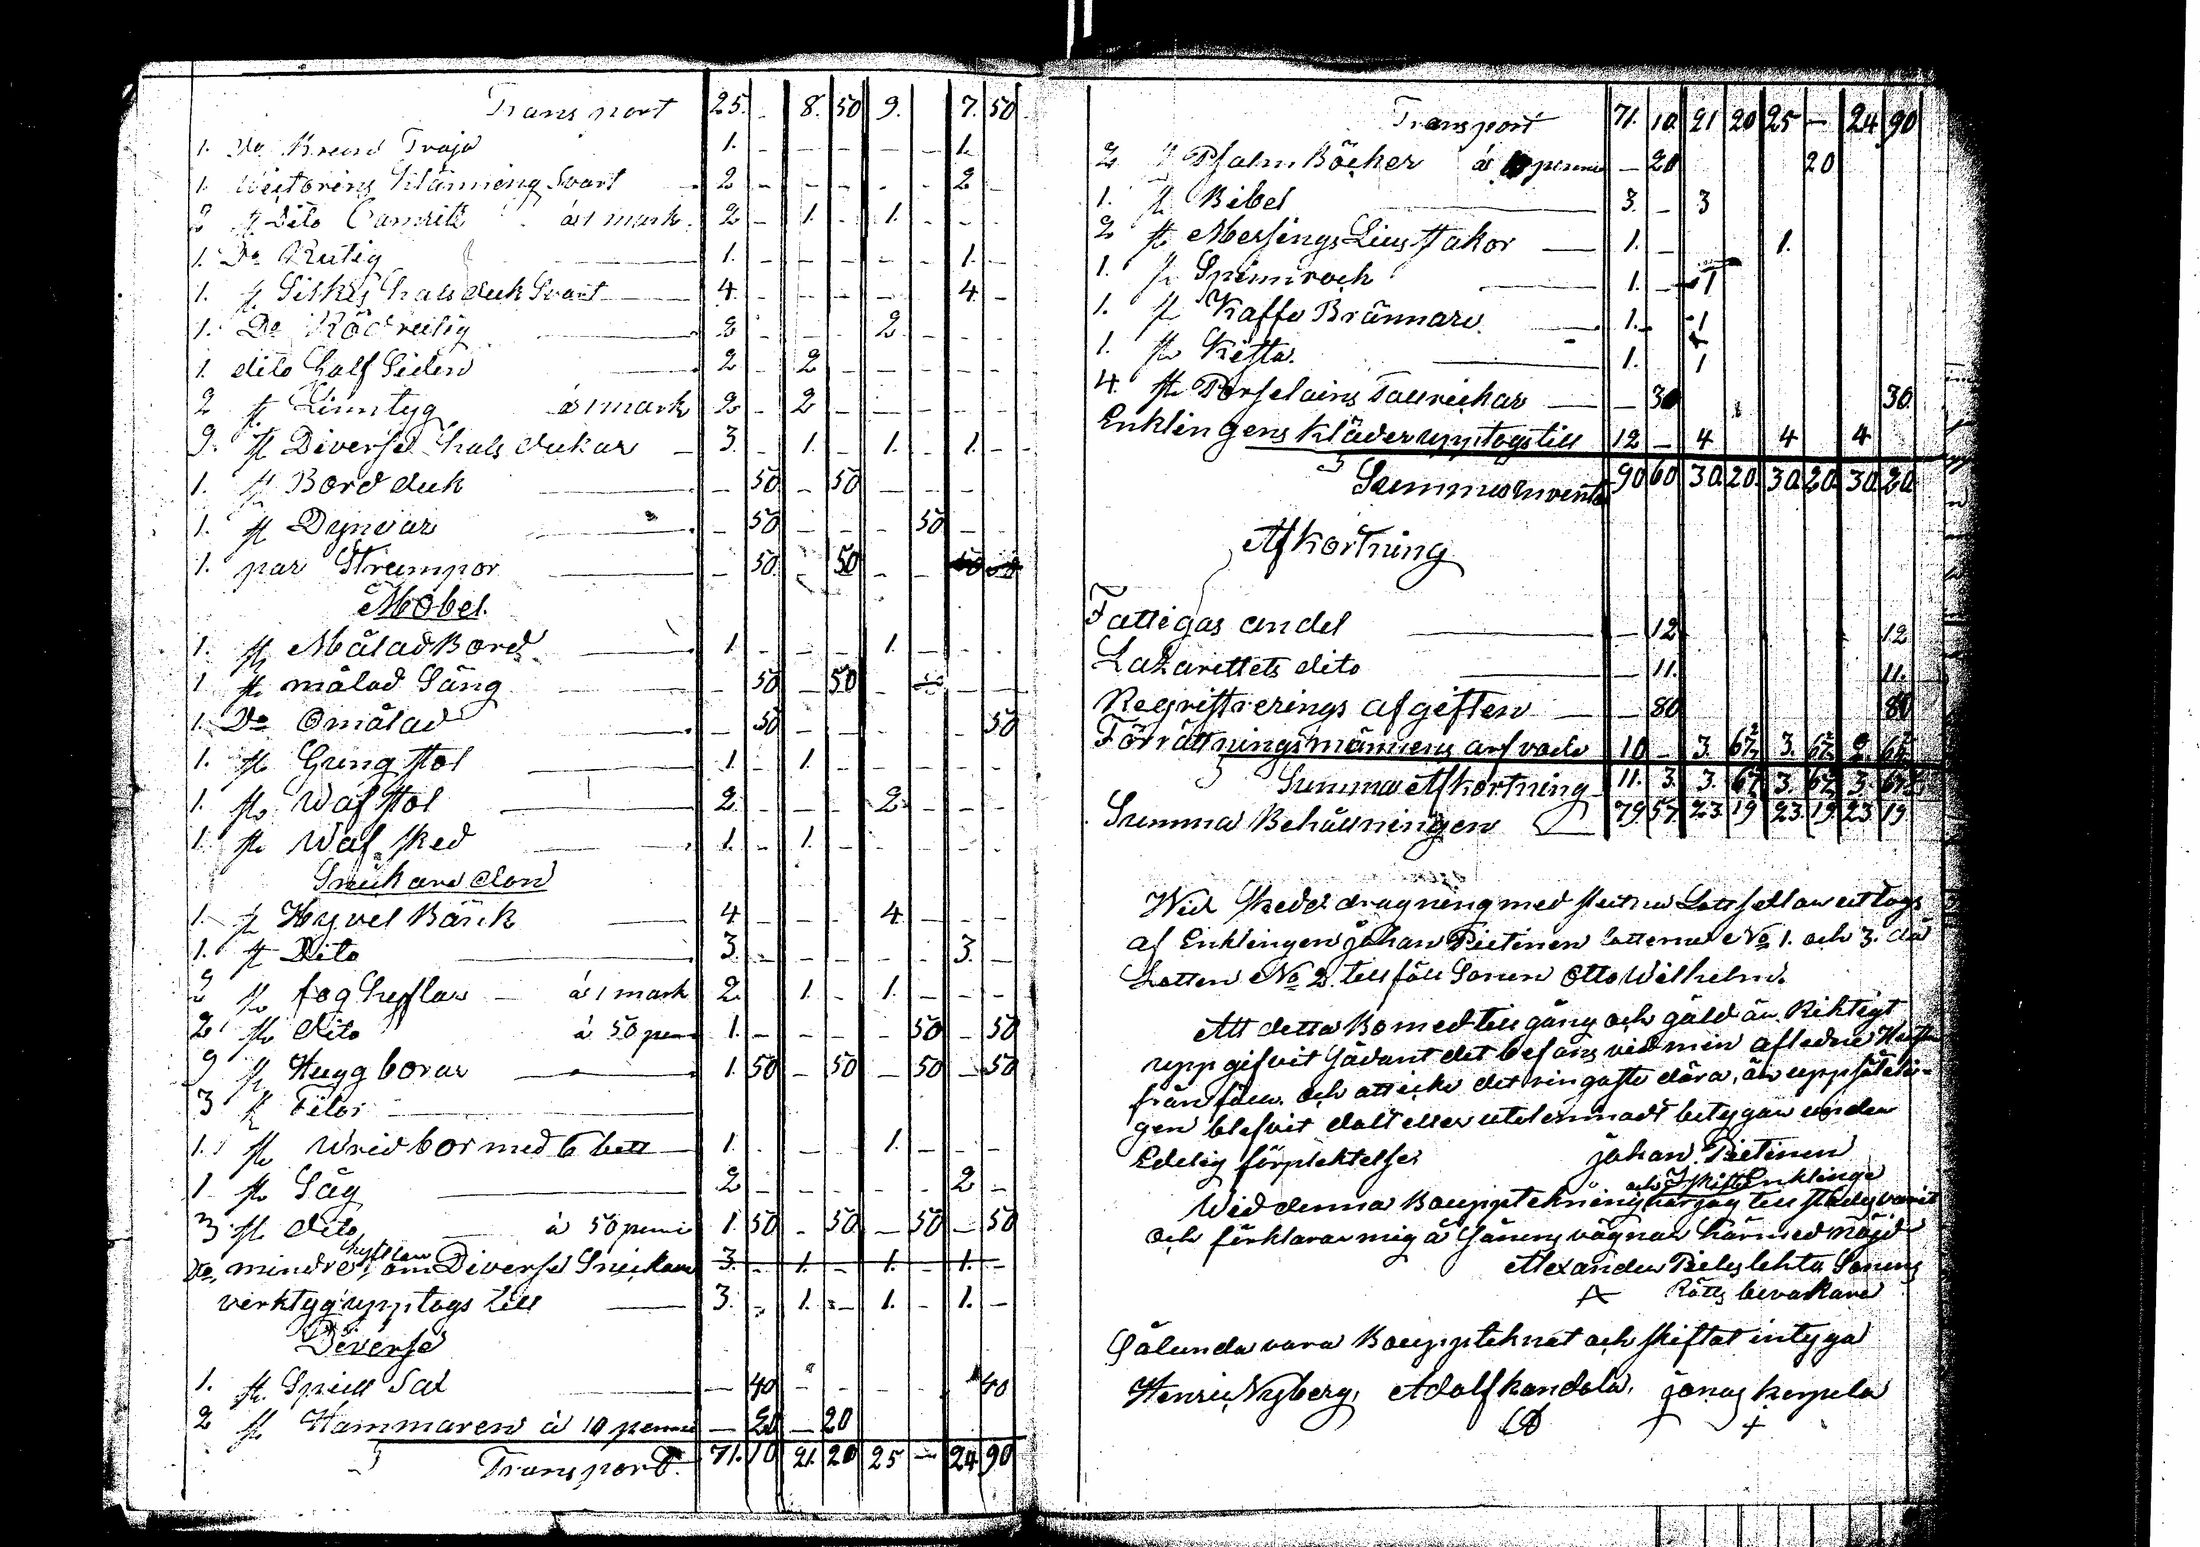 Transport 25. - 8. 50 9. 7. 50
1. Do Tröja 1. - - - - - 1.
1. Klänning Svart 2 - - - - - 2 -
2 st Dito á 1 mark. 2 - 1. - 1. - - -
1. Do Rutig 1. - - - - - 1. -
1. st Silkes halsduk Svart 4. - - - - - 4. -
1. Do Röd rutig 2 - - - 2. - - -
1. dito half Siden 2 - 2 - - - - -
2 st Linntyg á 1 mark 2 - 2 - - - - -
9. st Diverse halsdukar 3. - 1. - 1. - 1. -
1. st Bord duk - 50 - 50 - - - -
1. st Dynvar - 50 - - - 50 - -
1. par Strumpor - 50. - 50 - -
Möbel.
1. st Målad Bord 1. - - - 1. - - -
1 st målad Säng - 50 - 50 - - -
1. Do Omålad - 50 - - - - - 50
1. st Gungstol 1. - 1. - - - - -
1. st Wäfstol 2. - - - 2. - - -
1. st Wäf-sked 1. - 1. - - - - -
Snickare don
1. st Hyvel Bänk 4 - - - 4. - - -
1. st Dito 3. - - - - - 3. -
2 st foghyflar - á 1 mark 2. 1. - 1. - - -
2 st dito á 50 penni 1. - - - - 50 - 50
9 st Hugg borar 1. 50 - 50 - 50 - 50
3 st Filar
1. st Wrid bor med 6 bett 1. - - - 1. - - -
1 st Såg 2 - - - - - 2 -
3 st dito á 50 penni 1. 50 - 50. - 50 - 50
Do mindre hyflar Diverse Snickare 3. - 1. - 1. - 1. -
verktyg upptogs till 3. - 1. - 1. - 1. -
Diverse
1. st Spill Sax - 40 - - - - 40
2 st Hammaren á 10 penni - 20 - 20
Transport. 71. 10 21. 20 25 - 24 90
Transport 71. 10. 21 20 25 - 24 90
2 st Psalm Böcker á 10 penni - 20 20
1. st Bibel 3. - 3
2 st Messings Liusstakor 1. - 1.
1. st Spinnrock 1. - 1
1. st Kaffe Brännare 1. - 1
1. st Kista. 1. 1
4. st Porselains Tallrickar - 30 30.
Enklingens kläder upptogs till 12 - 4 4 4
Summa Invent. 90 60 30. 20. 30. 20. 30. 20
Afkortning
Fattigas andel - 12 12
Lazarettets dito - 11. 11.
Registrerings afgiften - 80 80
Förrättningsmännens arfvode 10 - 3. 67 3. 67 2. 66
Summa Afkortning 11. 3. 3. 67 3. 67 3. 67
Summa Behållningen 79 57 23. 19 23. 19 23 19
Wid skedd dragning med slutna Lottsedlar uttogs
af Enklingen Johan Pietinen lotterne No 1. och 3. då
Lotten No 2. tillföll Sonen Otto Wilhelm.
Att detta Bo med tillgång och gäld är Riktigt
uppgifvit Sådant det befans vid min aflidne Hustrus
frånfälle. och att icke det ringaste dåra, är uppsåteli-
gen blefvit dolt eller utelemnadt betygar under
Edelig förplicktelse: Johan Pietinen
och Skiftes Enklinge
Wid denna Bouppteckning har jag tillstädes varit
och förklarar mig å Sonens vägnar härmed nöjd
Alexander Pietilehto Sonens
X Rätts bevakare
Sålunda vara Bouppteknat och skiftat intyga
Henric Nyberg, Adolf Kandola, Jonas Kerpela
+